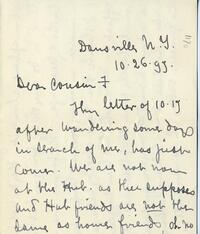 Dansville N.Y.
10.26.95.
Dear Cousin F
Thy letter of 10-15
after wandering some days
in search of me, has just
come. We are not now
at the Hub. as thee supposes
and Hub friends are not the
same as home friends, no